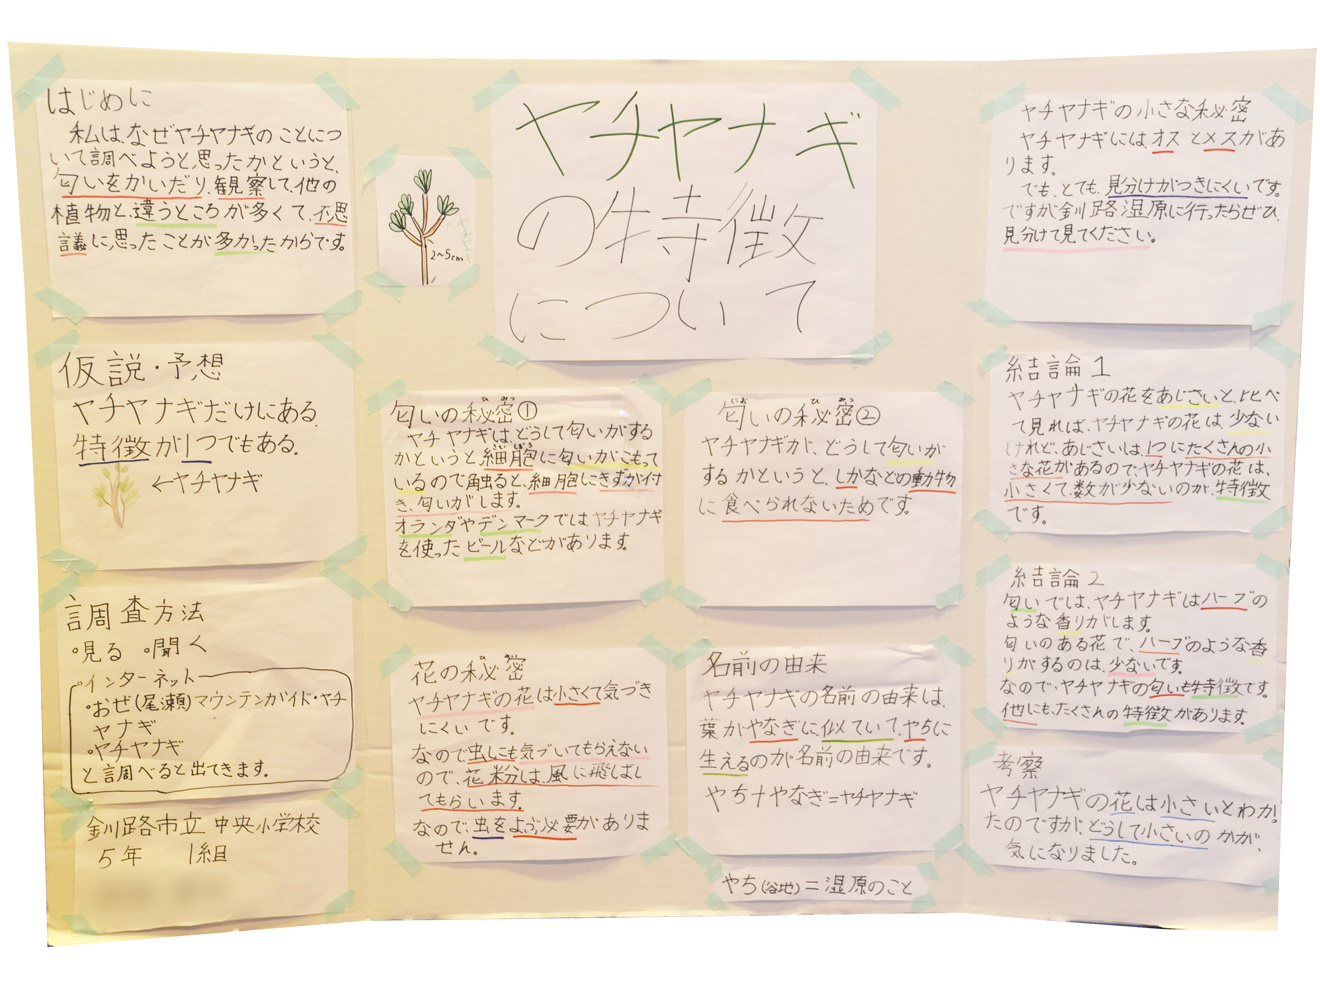 はじめに
私は、なぜヤチヤナギのことにつ
いて調べようと思ったかというと、
匂いをかいだり、観察して、他の
植物と、違うところが多くて、不思
議に思ったことが多かったからです。
仮説・予想
ヤチヤナギだけにある
特徴が1つでもある。
←ヤチヤナギ
調査方法
・見る ・聞く
・インターネット
・おぜ(尾瀬)マウンテンガイド・ヤチ
ヤナギ
・ヤチヤナギ
と調べると出てきます。
釧路市立中央小学校
5年 1組
2〜5cm
ヤチヤナギ
の特徴
について
匂いの秘密①
ヤチヤナギは、どうして匂いがする
かというと、細胞に匂いがこもって
いるので触ると、細胞にきずが付
き、匂いがします。
オランダやデンマークではヤチヤナギ
を使ったビールなどがあります。
匂いの秘密②
ヤチヤナギが、どうして匂いが
するかというと、しかなどの動物
に食べられないためです。
花の秘密
ヤチヤナギの花は小さくて気づき
にくいです。
なので虫しにも気づいてもらえない
ので、花粉は、風に飛しばし
てもらいます。
なので、虫をよぶ必要がありま
せん。
名前の由来
ヤチヤナギの名前の由来は、
葉がやなぎに似ていて、やちに
生えるのが名前の由来です。
やち+やなぎ=ヤチヤナギ
やち(谷地)=湿原のこと
ヤチヤナギの小さな秘密
ヤチヤナギには、オスとメスがあ
ります。
でも、とても、見分けがつきにくいです。
ですが釧路湿原に行ったらぜひ、
見分けて見てください。
結論1
ヤチヤナギの花をあじさいと、比べ
て見れば、ヤチヤナギの花は少ない
けれど、あじさいは、1つにたくさんの小
さな花があるので、ヤチヤナギの花は、
小さくて、数が少ないのが、特徴
です。
結論2
匂いでは、ヤチヤナギはハーブの
ような香りがします。
匂いのある花で、ハーブのような香
りがするのは、少ないです。
なので、ヤチヤナギの匂いも特徴です。
他にも、たくさんの特徴があります。
考察
ヤチヤナギの花は小さいとわかっ
たのですが、どうして小さいのかが、
気になりました。